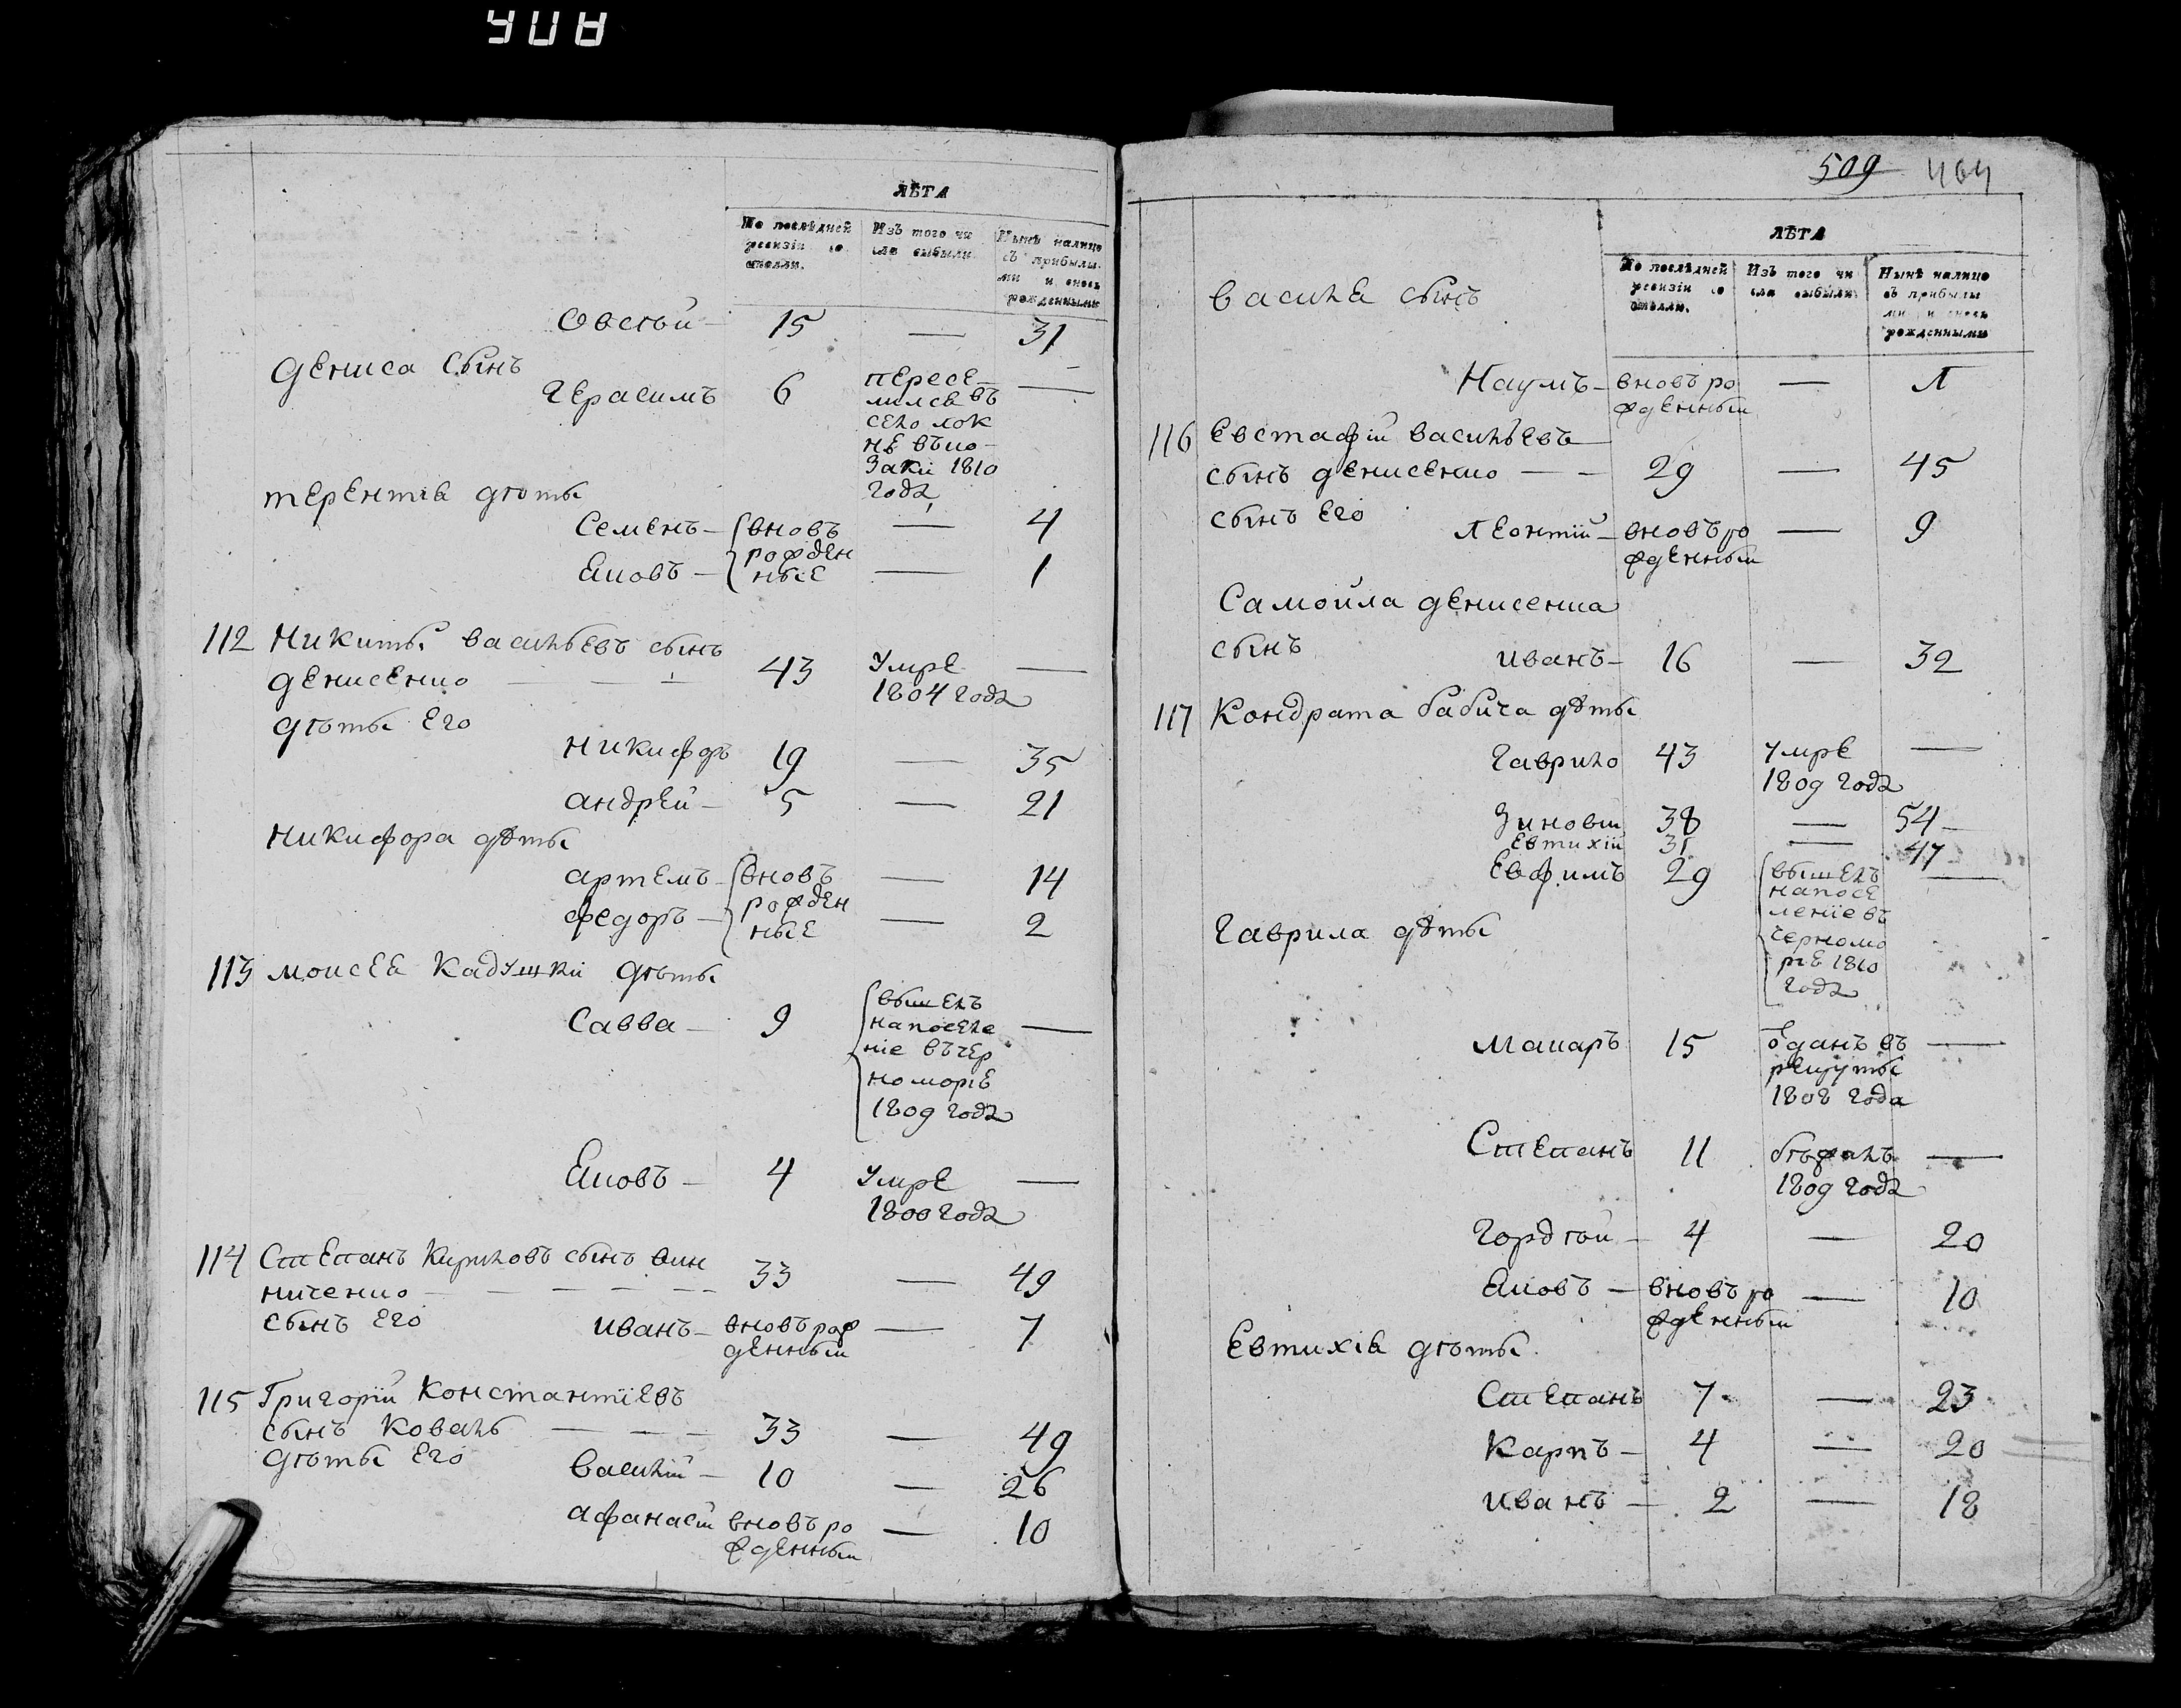 508
ЛѢТА
По послѣдней ревизіи со стояли.
Изъ того чи сла выбыли
Нынѣ налицо съ прибылы ми и вновь рожденными
Овсѣй — 15 — 31
Дениса сынъ
Герасимъ 6 пересе —
лился въ
село лок
нѣ въ
1810
года
терентія дѣты
Семенъ — вновь — 4
рожден
Яковъ — ные — 1
112 Никиты васильевъ сынъ
денисенко 43 умре —
1804 года
дѣты его
никифоръ 19 — 35
андрей — 5 — 21
Никифора дѣты
артемъ — вновь — 14
рожден
федоръ — ные — 2
113 моисея Кадушки дѣты
Савва — 9 вышелъ —
на поселе
ніе въ чер
номоріе
1809 года
Яковъ — 4 умре —
1800 года
114 Степанъ Кириловъ сынъ вин
ниченко 33 — 49
сынъ его иванъ — вновь рож — 7
денный
115 Григорій Константіевъ
сынъ Коваль 33 — 49
дѣты его василій — 10 — 26
афанасій вновь ро — 10
жденный
509 464
ЛѢТА
По послѣдней ревизіи со стояли.
Изъ того чи сла выбыли
Нынѣ налицо съ прибылы ми и вновь рожденными
василя сынъ
Наумъ — вновь ро — Л
жденный
116 Евстафій васильевъ
сынъ денисенко — — 29 — 45
сынъ его Леонтій — вновь ро — 9
жденный
Самойла денисенка
сынъ иванъ — 16 — 32
117 Кондрата бабича дѣты
Гаврило 43 умре —
1809 года
Зиновій 38 — 54 —
Евтихій 31 — 47
Евфимъ 29 вышелъ —
на посе
леніе въ
черномо
ріе 1810
года
Гаврила дѣты
Макаръ 15 ѿданъ въ —
рекруты
1808 года
Степанъ 11 бѣжалъ —
1809 года
Гордѣй — 4 — 20
Яковъ — вновь ро — 10
жденный
Евтихія дѣты
Степанъ 7 — 23
Карпъ — 4 — 20
иванъ — 2 — 18